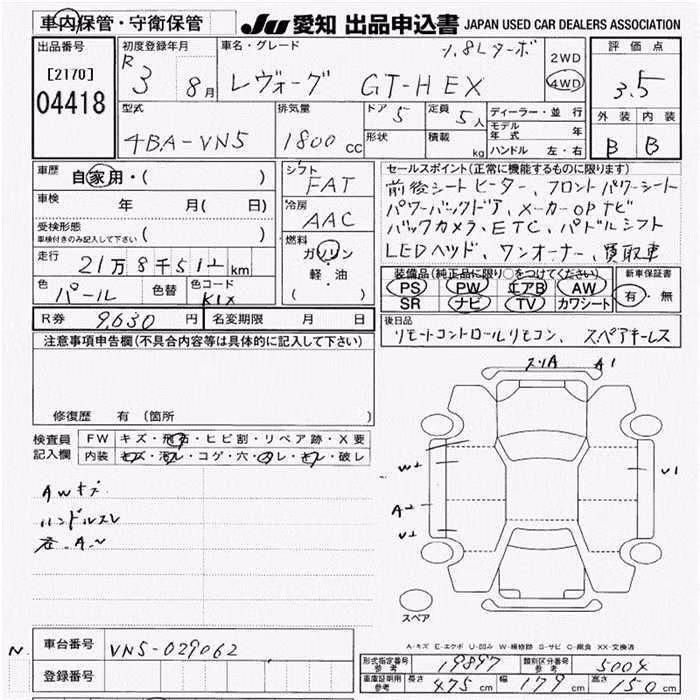 車内保管・守衛保管
JU 愛知 出品申込書 JAPAN USED CAR DEALERS ASSOCIATION
出品番号
[2170]
04418
初度登録年月
R 3 8月
車名・グレード
1.8Lターボ
レヴォーグ GT-H EX
2WD
4WD
評価点
3.5
外装 内装
B B
型式
4BA-VN5
排気量
1800 cc
ドア 5
形状
定員 5人
積載 kg
ディーラー・並行
モデル年式 年
ハンドル 左・右
車歴
自家用・( )
車検 年 月( 日)
受検形態
車検付きのみ記入して下さい ( )
走行 21万8千512km
色 パール 色替 色コード K1X
シフト
FAT
冷房
AAC
燃料
ガソリン
軽・油
( )
セールスポイント(正常に機能するものに限ります)
前後シートヒーター、フロントパワーシート
パワーバックドア、メーカーOPナビ
バックカメラ、ETC、パドルシフト
LEDヘッド、ワンオーナー、買取車
装備品(純正品に限り○をつけてください)
PS PW エアB AW
SR ナビ TV カワシート
新車保証書
有・無
R券 9,630円 名変期限 月 日
後日品
リモートコントロールリモコン、スペアキーレス
注意事項申告欄(不具合内容等は具体的に記入して下さい)
修復歴 有 (箇所 )
検査員記入欄
FW キズ・飛石・ヒビ割・リペア跡・X要
内装 キズ・汚レ・コゲ・穴・スレ・キレ・破レ
AWキズ
ハンドルスレ
スリA A1
W2
A2
U2
U1
スペア
A-キズ E-エクボ U-凹み W-補修跡 S-サビ C-腐食 XX-交換済
N.
車台番号 VN5-029062
登録番号
形式指定番号 参考 19897 類別区分番号 参考 5004
車庫証明用 参考 長さ 475cm 幅 179cm 高さ 150cm